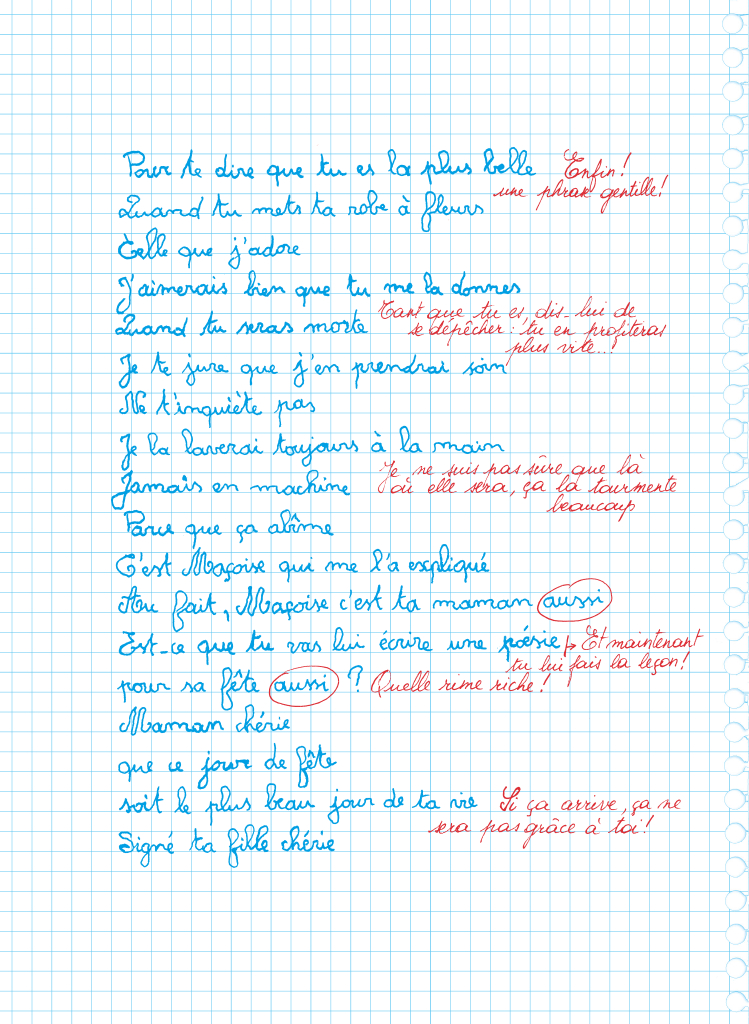 Pour te dire que tu es la plus belle Enfin!
une phrase gentille!
Quand tu mets ta robe à fleurs
Celle que j'adore
J'aimerais bien que tu me la donnes
Tant que tu es, dis-lui de
Quand tu seras morte se dépêcher: tu en profiteras
plus vite...!
Je te jure que j'en prendrai soin
Ne t'inquiète pas
Je la laverai toujours à la main
Je ne suis pas sûre que là
Jamais en machine où elle sera, ça la tourmente
beaucoup
Parce que ça abîme
C'est Maçoise qui me l'a expliqué
Au fait, Maçoise c'est ta maman aussi
Est-ce que tu vas lui écrire une poésie Et maintenant
tu lui fais la leçon!
pour sa fête aussi ? Quelle rime riche!
Maman chérie
que ce jour de fête
soit le plus beau jour de ta vie Si ça arrive, ça ne
sera pas grâce à toi!
Signé ta fille chérie